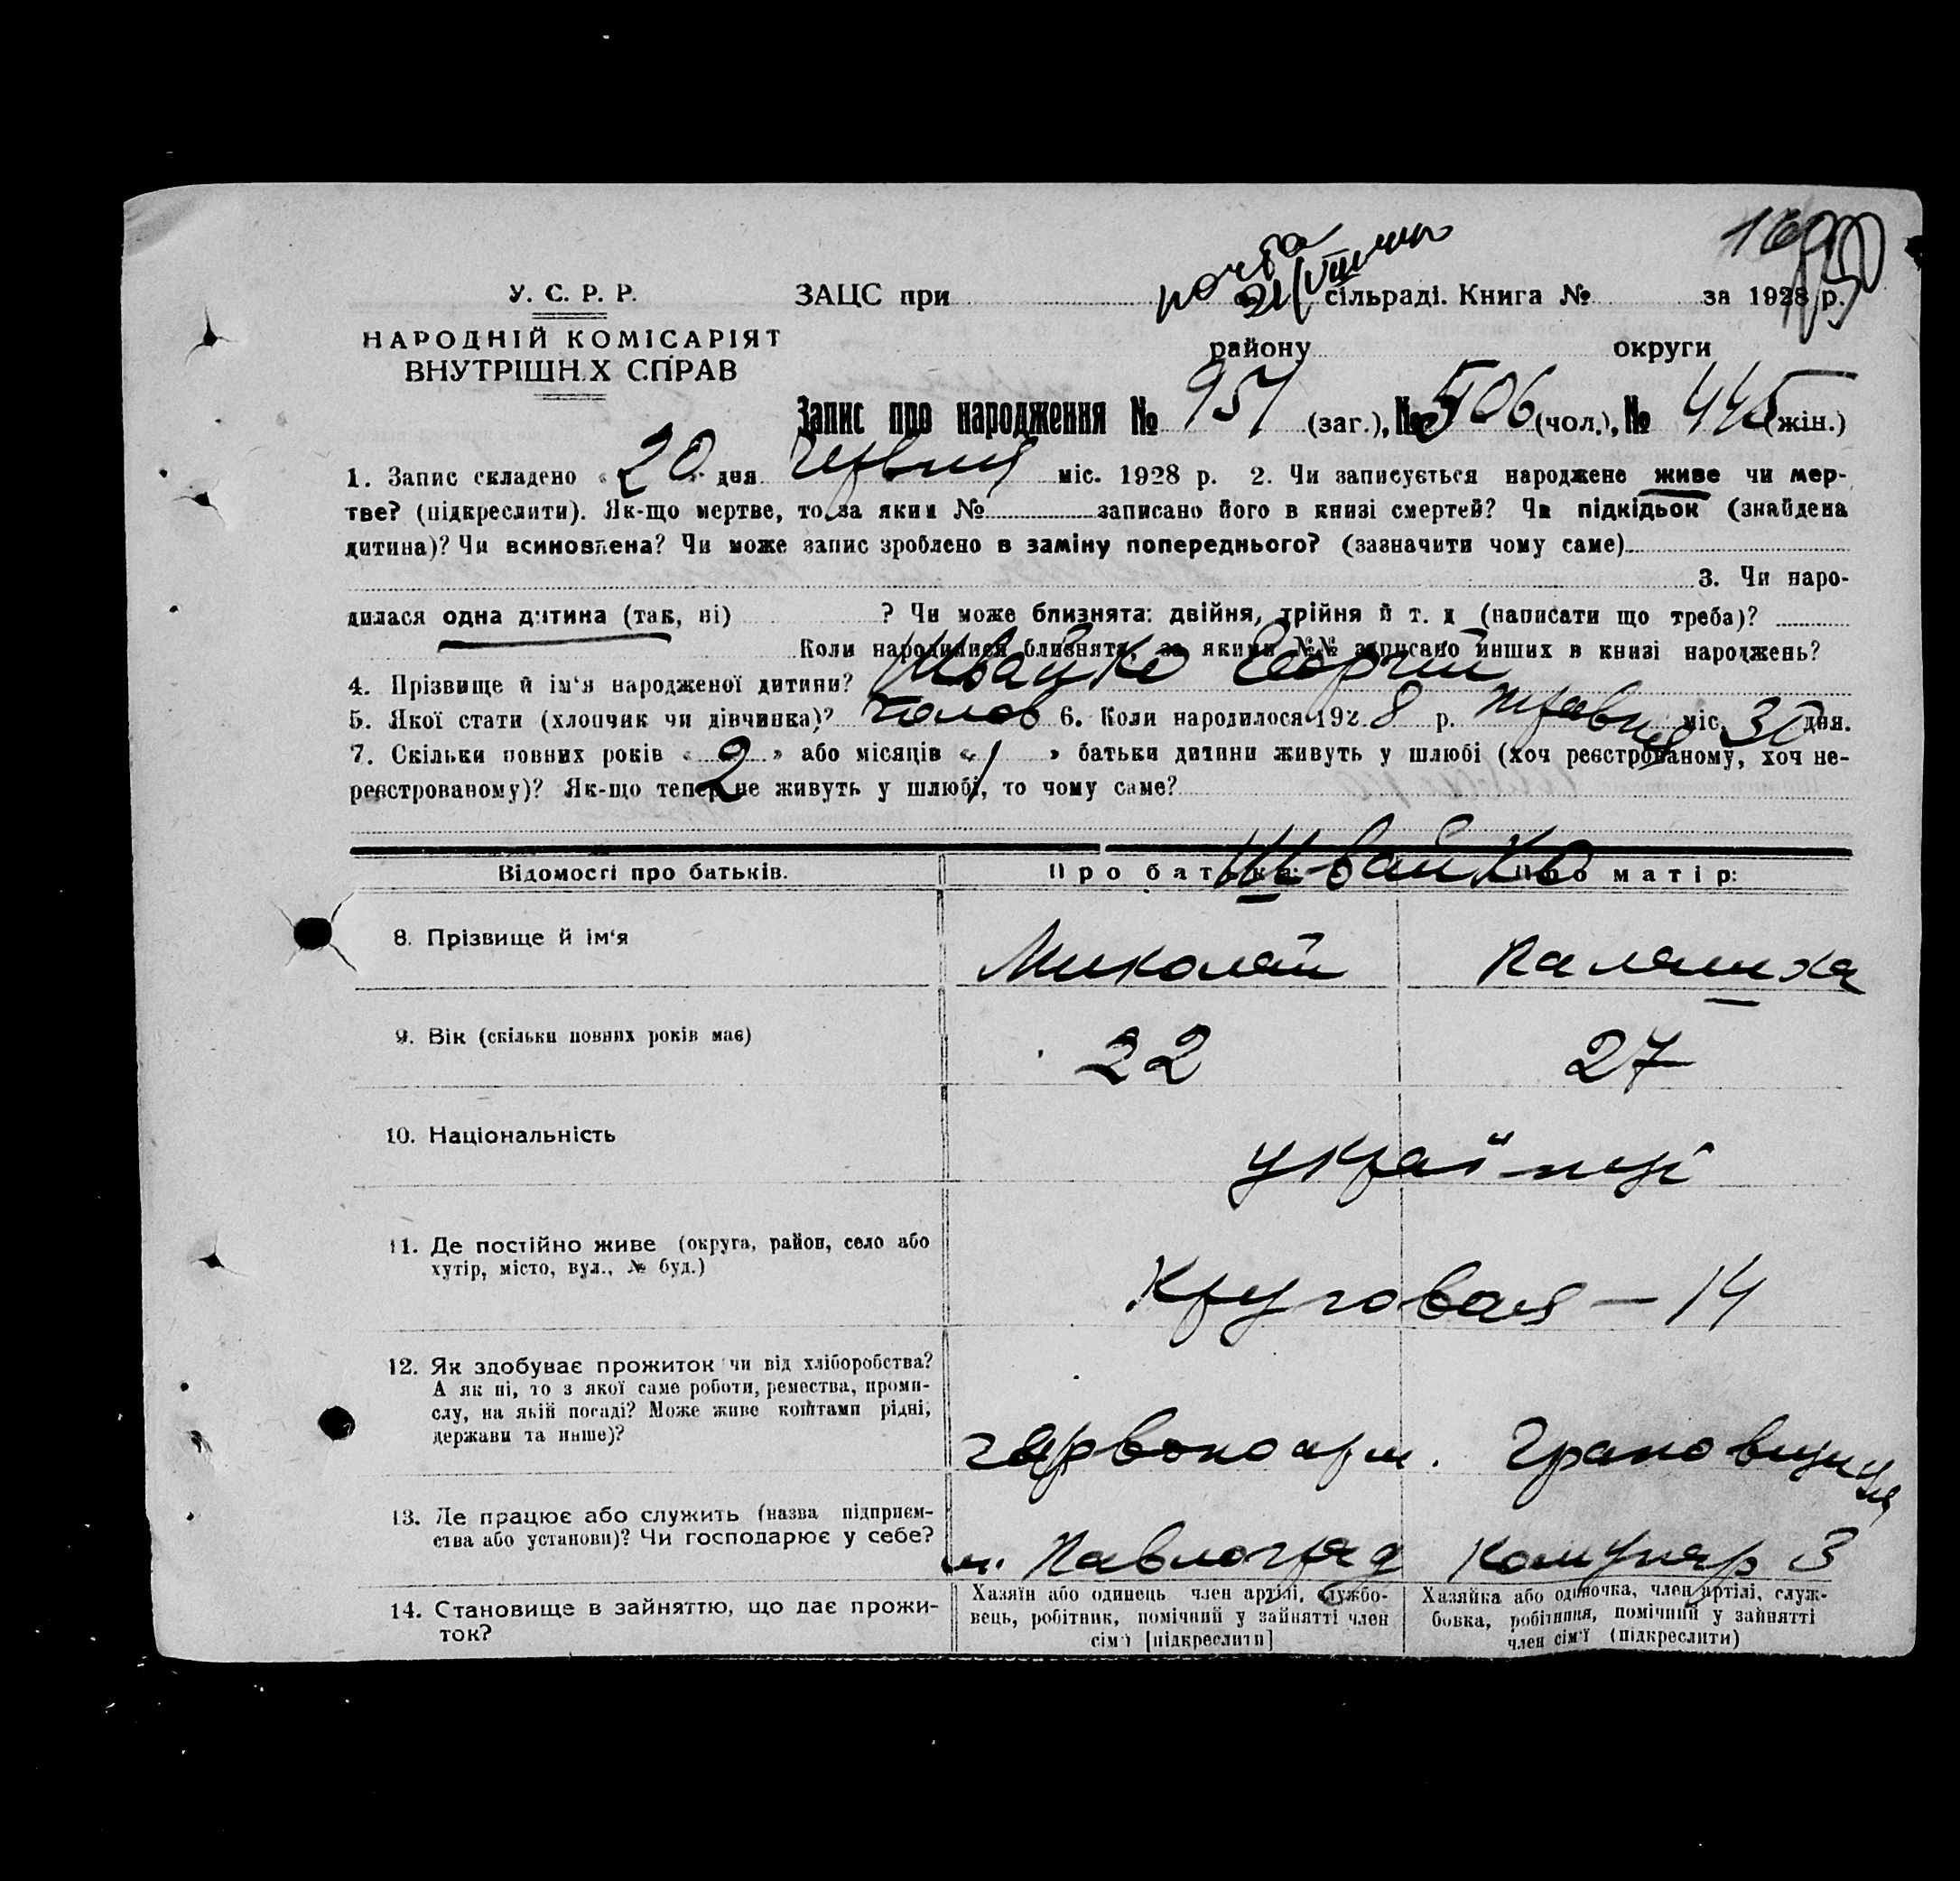 У. С. Р. Р.
НАРОДНІЙ КОМІСАРІЯТ
ВНУТРІШН.Х СПРАВ
ЗАЦС при сільраді. Книга № за 1928 р.
району округи
Запис про народження № 951 (заг.), № 506 (чол.), № 445 (жін.)
1. Запис складено « 20 » дня червня міс. 1928 р. 2. Чи записується народжене живе чи мер-
тве? (підкреслити). Як-що мертве, то за яким № записано його в книзі смертей? Чи підкідьок (знайдена
дитина)? Чи всиновлена? Чи може запис зроблено в заміну попереднього? (зазначити чому саме)
3. Чи наро-
дилася одна дитина (так, ні) ? Чи може близнята: двійня, трійня й т. д (написати що треба)?
Коли народилися близнята, за якими №№ записано инших в книзі народжень?
4. Прізвище й ім'я народженої дитини? Швайко Георгій
5. Якої стати (хлопчик чи дівчинка)? чолов 6. Коли народилося 1928 р. травня міс. 30 дня.
7. Скільки повних років « 2 » або місяців « 1 » батьки дитини живуть у шлюбі (хоч реєстрованому, хоч не-
реєстрованому)? Як-що тепер не живуть у шлюбі, то чому саме?
Швайко
Відомості про батьків. Про батька: Про матір:
8. Прізвище й ім'я Миколай Палашка
9. Вік (скільки повних років має) 22 27
10. Національність українці
11. Де постійно живе (округа, район, село або
хутір, місто, вул., № буд.) Круговая — 14
12. Як здобуває прожиток чи від хліборобства?
А як ні, то з якої саме роботи, ремества, проми-
слу, на якій посаді? Може живе коштами рідні,
держави та инше)? червоноарм.
13. Де працює або служить (назва підприєм-
ства або установи)? Чи господарює у себе? м. Павлоград Комунар 3
14. Становище в зайняттю, що дає прожи-
ток?
Хазяїн або одинець член артілі, службо-
вець, робітник, помічний у зайнятті член
сім'ї [підкреслити]
Хазяйка або одиночка, член артілі, служ-
бовка, робітниця, помічний у зайнятті
член сім'ї (підкреслити)